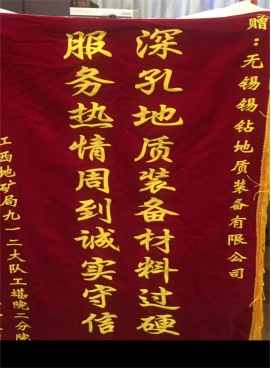 赠：无锡锡钻地质装备有限公司
深孔地质装备材料过硬
服务热情周到诚实守信
江西地矿局九一二大队工堪院二分院